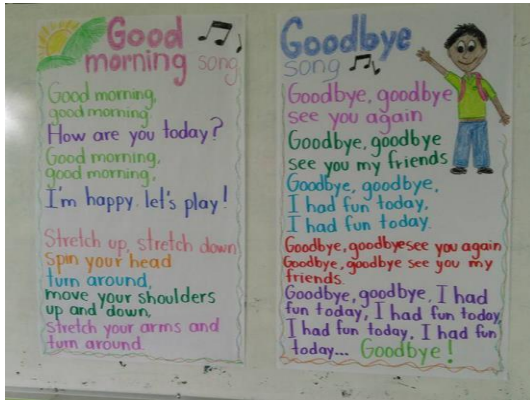 Good
morning song
Good morning,
good morning.
How are you today?
Good morning,
good morning,
I'm happy let's play!
Stretch up, stretch down
spin your head
turn around,
move your shoulders
up and down,
stretch your arms and
turn around.
Goodbye
song
Goodbye, goodbye
see you again
Goodbye, goodbye
see you my friends
Goodbye, goodbye,
I had fun today,
I had fun today.
Goodbye, goodbye see you again
Goodbye, goodbye see you my
friends.
Goodbye, goodbye, I had
fun today, I had fun today,
I had fun today, I had fun
today... Goodbye!